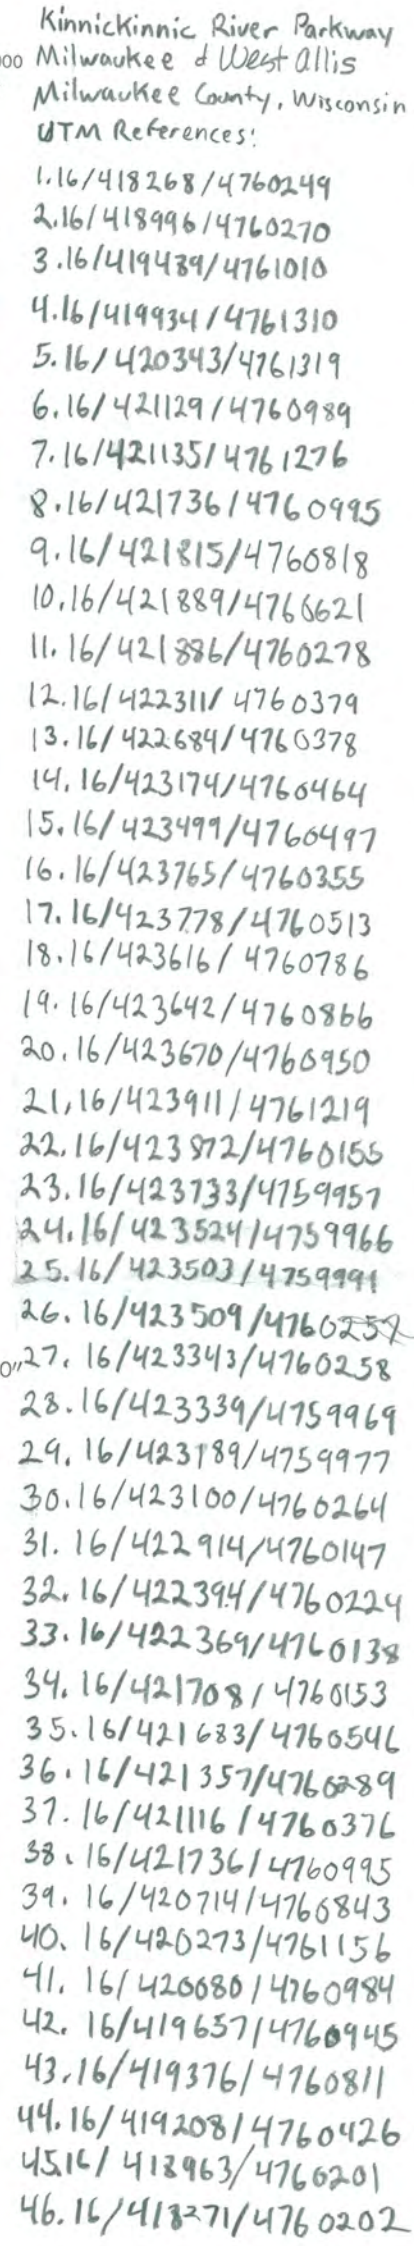 Kinnickinnic River Parkway
000 Milwaukee & West Allis
Milwaukee County, Wisconsin
UTM References:
1.16/418268/4760249
2.16/418996/4760270
3.16/419439/4761010
4.16/419934/4761310
5.16/420343/4761319
6.16/421129/4760989
7.16/421135/4761276
8.16/421736/4760995
9.16/421815/4760818
10.16/421889/4760621
11.16/421886/4760278
12.16/422311/4760379
13.16/422684/4760378
14.16/423174/4760464
15.16/423499/4760497
16.16/423765/4760355
17.16/423778/4760513
18.16/423616/4760786
19.16/423642/4760866
20.16/423670/4760950
21,16/423911/4761219
22.16/423872/4760155
23.16/423733/4759957
24.16/423524/4759966
25.16/423503/4759991
26.16/423509/4760257
0" 27.16/423343/4760258
28.16/423339/4759969
29.16/423189/4759977
30.16/423100/4760264
31.16/422914/4760147
32.16/422394/4760224
33.16/422369/4760138
34.16/421708/4760153
35.16/421683/4760546
36.16/421357/4760289
37.16/421116/4760376
38.16/421736/4760995
39.16/420714/4760843
40.16/420273/4761156
41.16/420080/4760984
42.16/419657/4760945
43.16/419376/4760811
44.16/419208/4760426
45.16/418963/4760201
46.16/418271/4760202